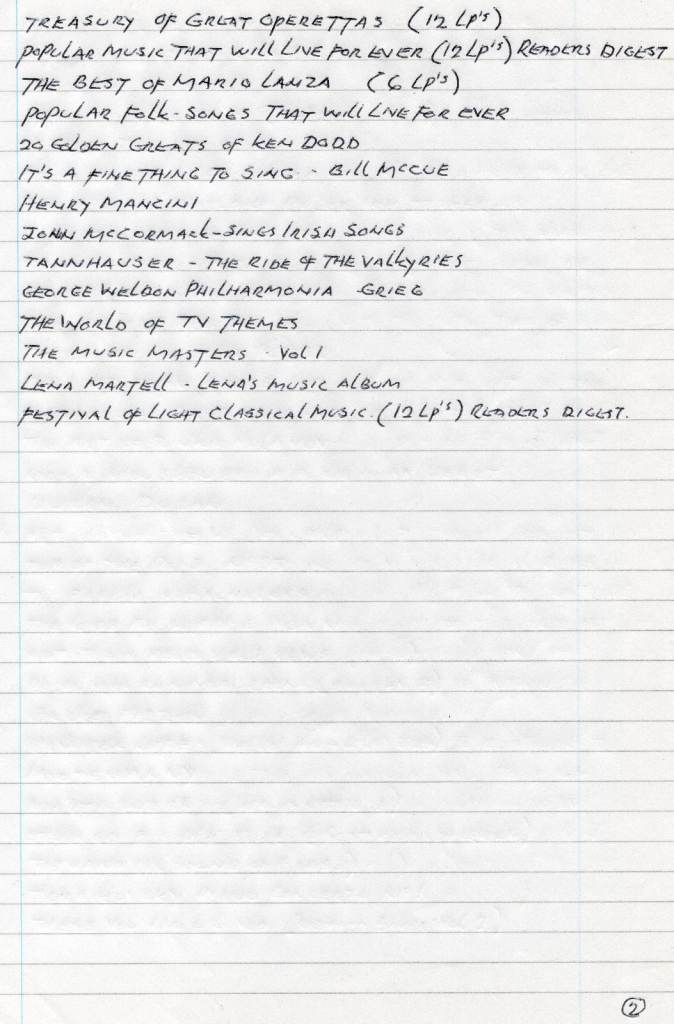 TREASURY OF GREAT OPERETTAS (12 LP'S)
POPULAR MUSIC THAT WILL LIVE FOR EVER (12 LP'S) READERS DIGEST
THE BEST OF MARIO LANZA (6 LP'S)
POPULAR FOLK-SONGS THAT WILL LIVE FOR EVER
20 GOLDEN GREATS OF KEN DODD
IT'S A FINE THING TO SING - BILL McCUE
HENRY MANCINI
JOHN McCORMACK - SINGS IRISH SONGS
TANNHAUSER - THE RIDE OF THE VALKYRIES
GEORGE WELDON PHILHARMONIA - GRIEG
THE WORLD OF TV THEMES
THE MUSIC MASTERS - VOL 1
LENA MARTELL - LENA'S MUSIC ALBUM
FESTIVAL OF LIGHT CLASSICAL MUSIC. (12 LP'S) READERS DIGEST.
2